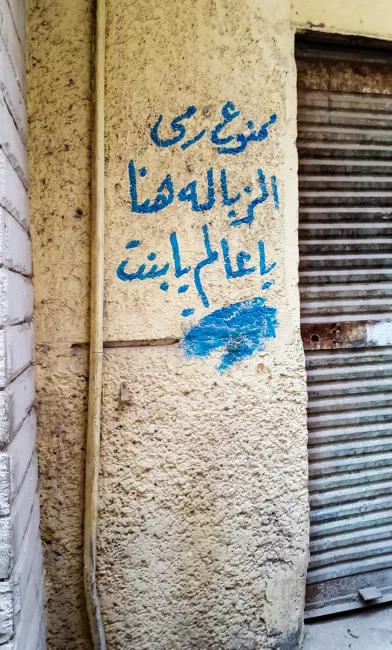 ممنوع رمى
الزباله هنا
يا عالم يا بنت